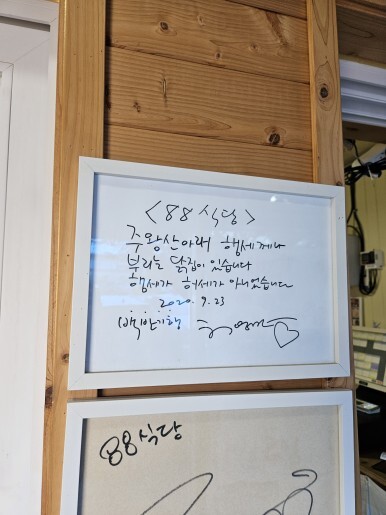 <88 식당>
주왕산아래 행세께나
부리는 닭집이 있습니다
행세가 허세가 아니었습니다
2020. 9. 23
백반기행
88식당